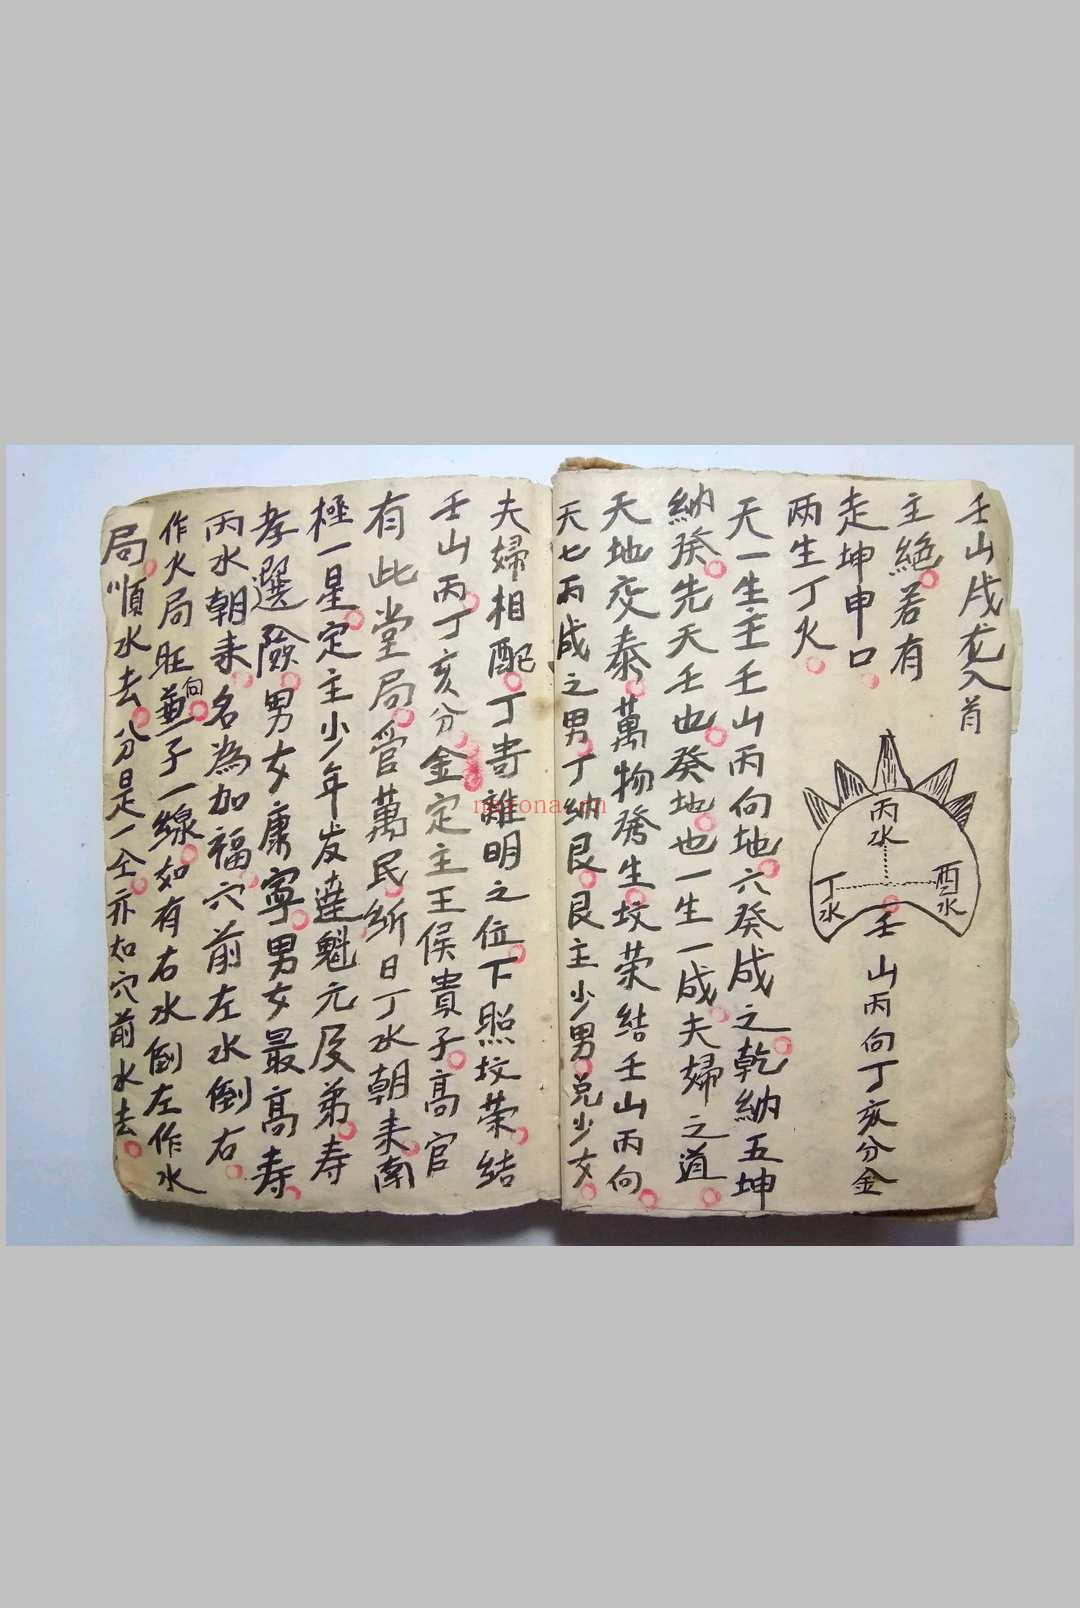 壬山戌龙入首
主絕若有
走坤申口
两生丁火
丙水
丁水
酉水
壬山丙向丁亥分金
天一生壬壬山丙向地六癸成之乾納五坤
納癸先天壬也癸地也一生一成夫婦之道
天地交泰萬物發生坟荣結壬山丙向
天七丙成之男丁納艮艮主少男兑少女
夫婦相配丁寄離明之位下照坟荣結
壬山丙丁亥分金定主王侯貴子高官
有此堂局管萬民斩日丁水朝来南
極一星定主少年发達魁元及弟寿
孝選險男女康寧男女最高寿
丙水朝来名為加福穴前左水倒右
作火局旺向兼子一線如有右水倒左作水
局順水去分是一仝亦如穴前水去